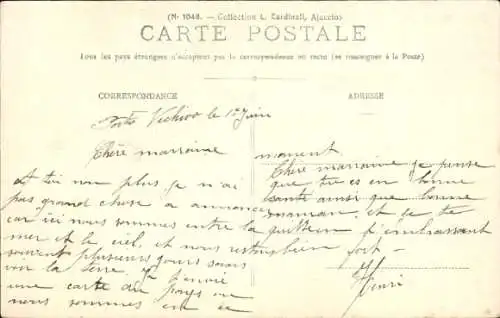 (Nº 1048. - Collection L. Cardinali, Ajaccio)
CARTE POSTALE
Tous les pays étrangers n'acceptent pas la correspondance au recto (se renseigner à la Poste)
CORRESPONDANCE
ADRESSE
Porto Vechivo le 1er Juin
Chère marraine
et toi non plus, je n'ai
pas grand chose a annoncer
car ici nous sommes entre la
mer et le ciel et nous restons
souvent plusieurs jours sans
voir la terre. Je t'envoi
une carte du pays ou
nous sommes en ce
moment
Chère marraine je pense
que tu es en bonne
santé ainsi que bonne
maman. et je te
quitte en t'embrassant
bien fort -
Henri